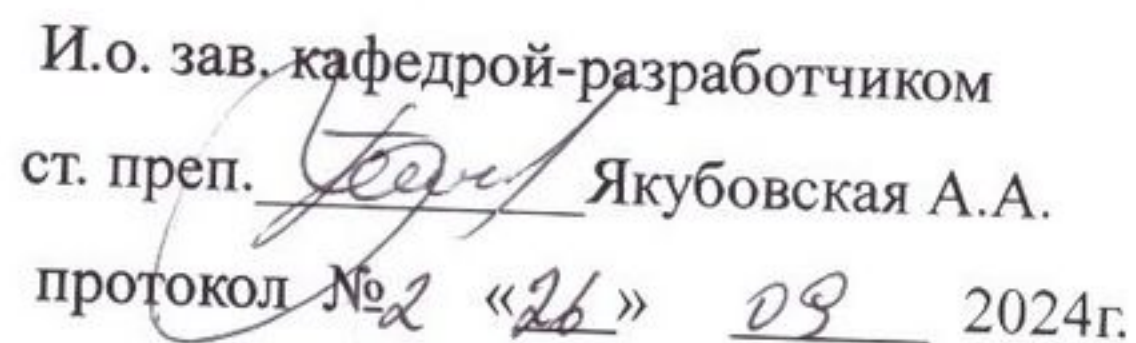 И.о. зав. кафедрой-разработчиком
ст. преп. Якубовская А.А.
протокол №2 «26» 09 2024г.